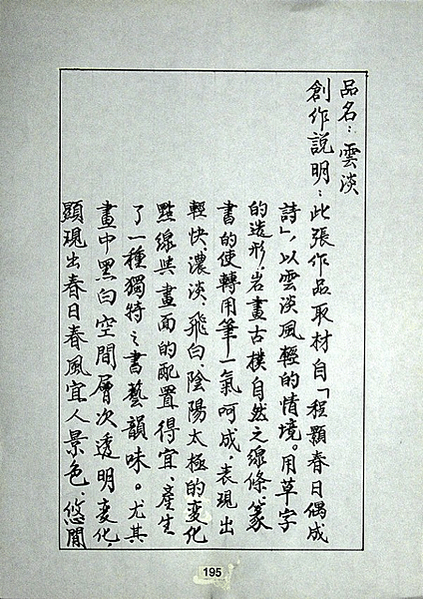 品名：雲淡
創作說明：此張作品取材自「程顥春日偶成
詩」，以雲淡風輕的情境。用草字
的造形岩畫古樸自然之線條、篆
書的使轉用筆一氣呵成，表現出
輕快、濃淡、飛白、陰陽太極的変化
點線與畫面的配置得宜、產生
了一種獨特之書藝韻味。尤其
畫中黑白空間層次透明変化，
顯現出春日春風宜人景色、悠閒
195